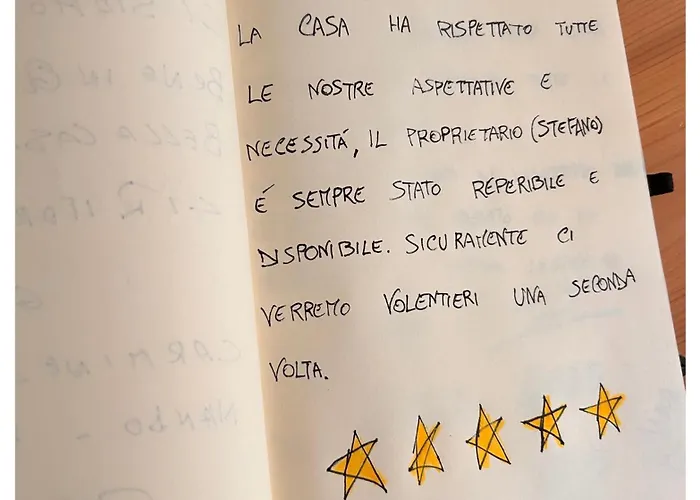 LA CASA HA RISPETTATO TUTTE
LE NOSTRE ASPETTATIVE E
NECESSITÁ, IL PROPRIETARIO (STEFANO)
É SEMPRE STATO REPERIBILE E
DISPONIBILE. SICURAMENTE CI
VERREMO VOLENTIERI UNA SECONDA
VOLTA.